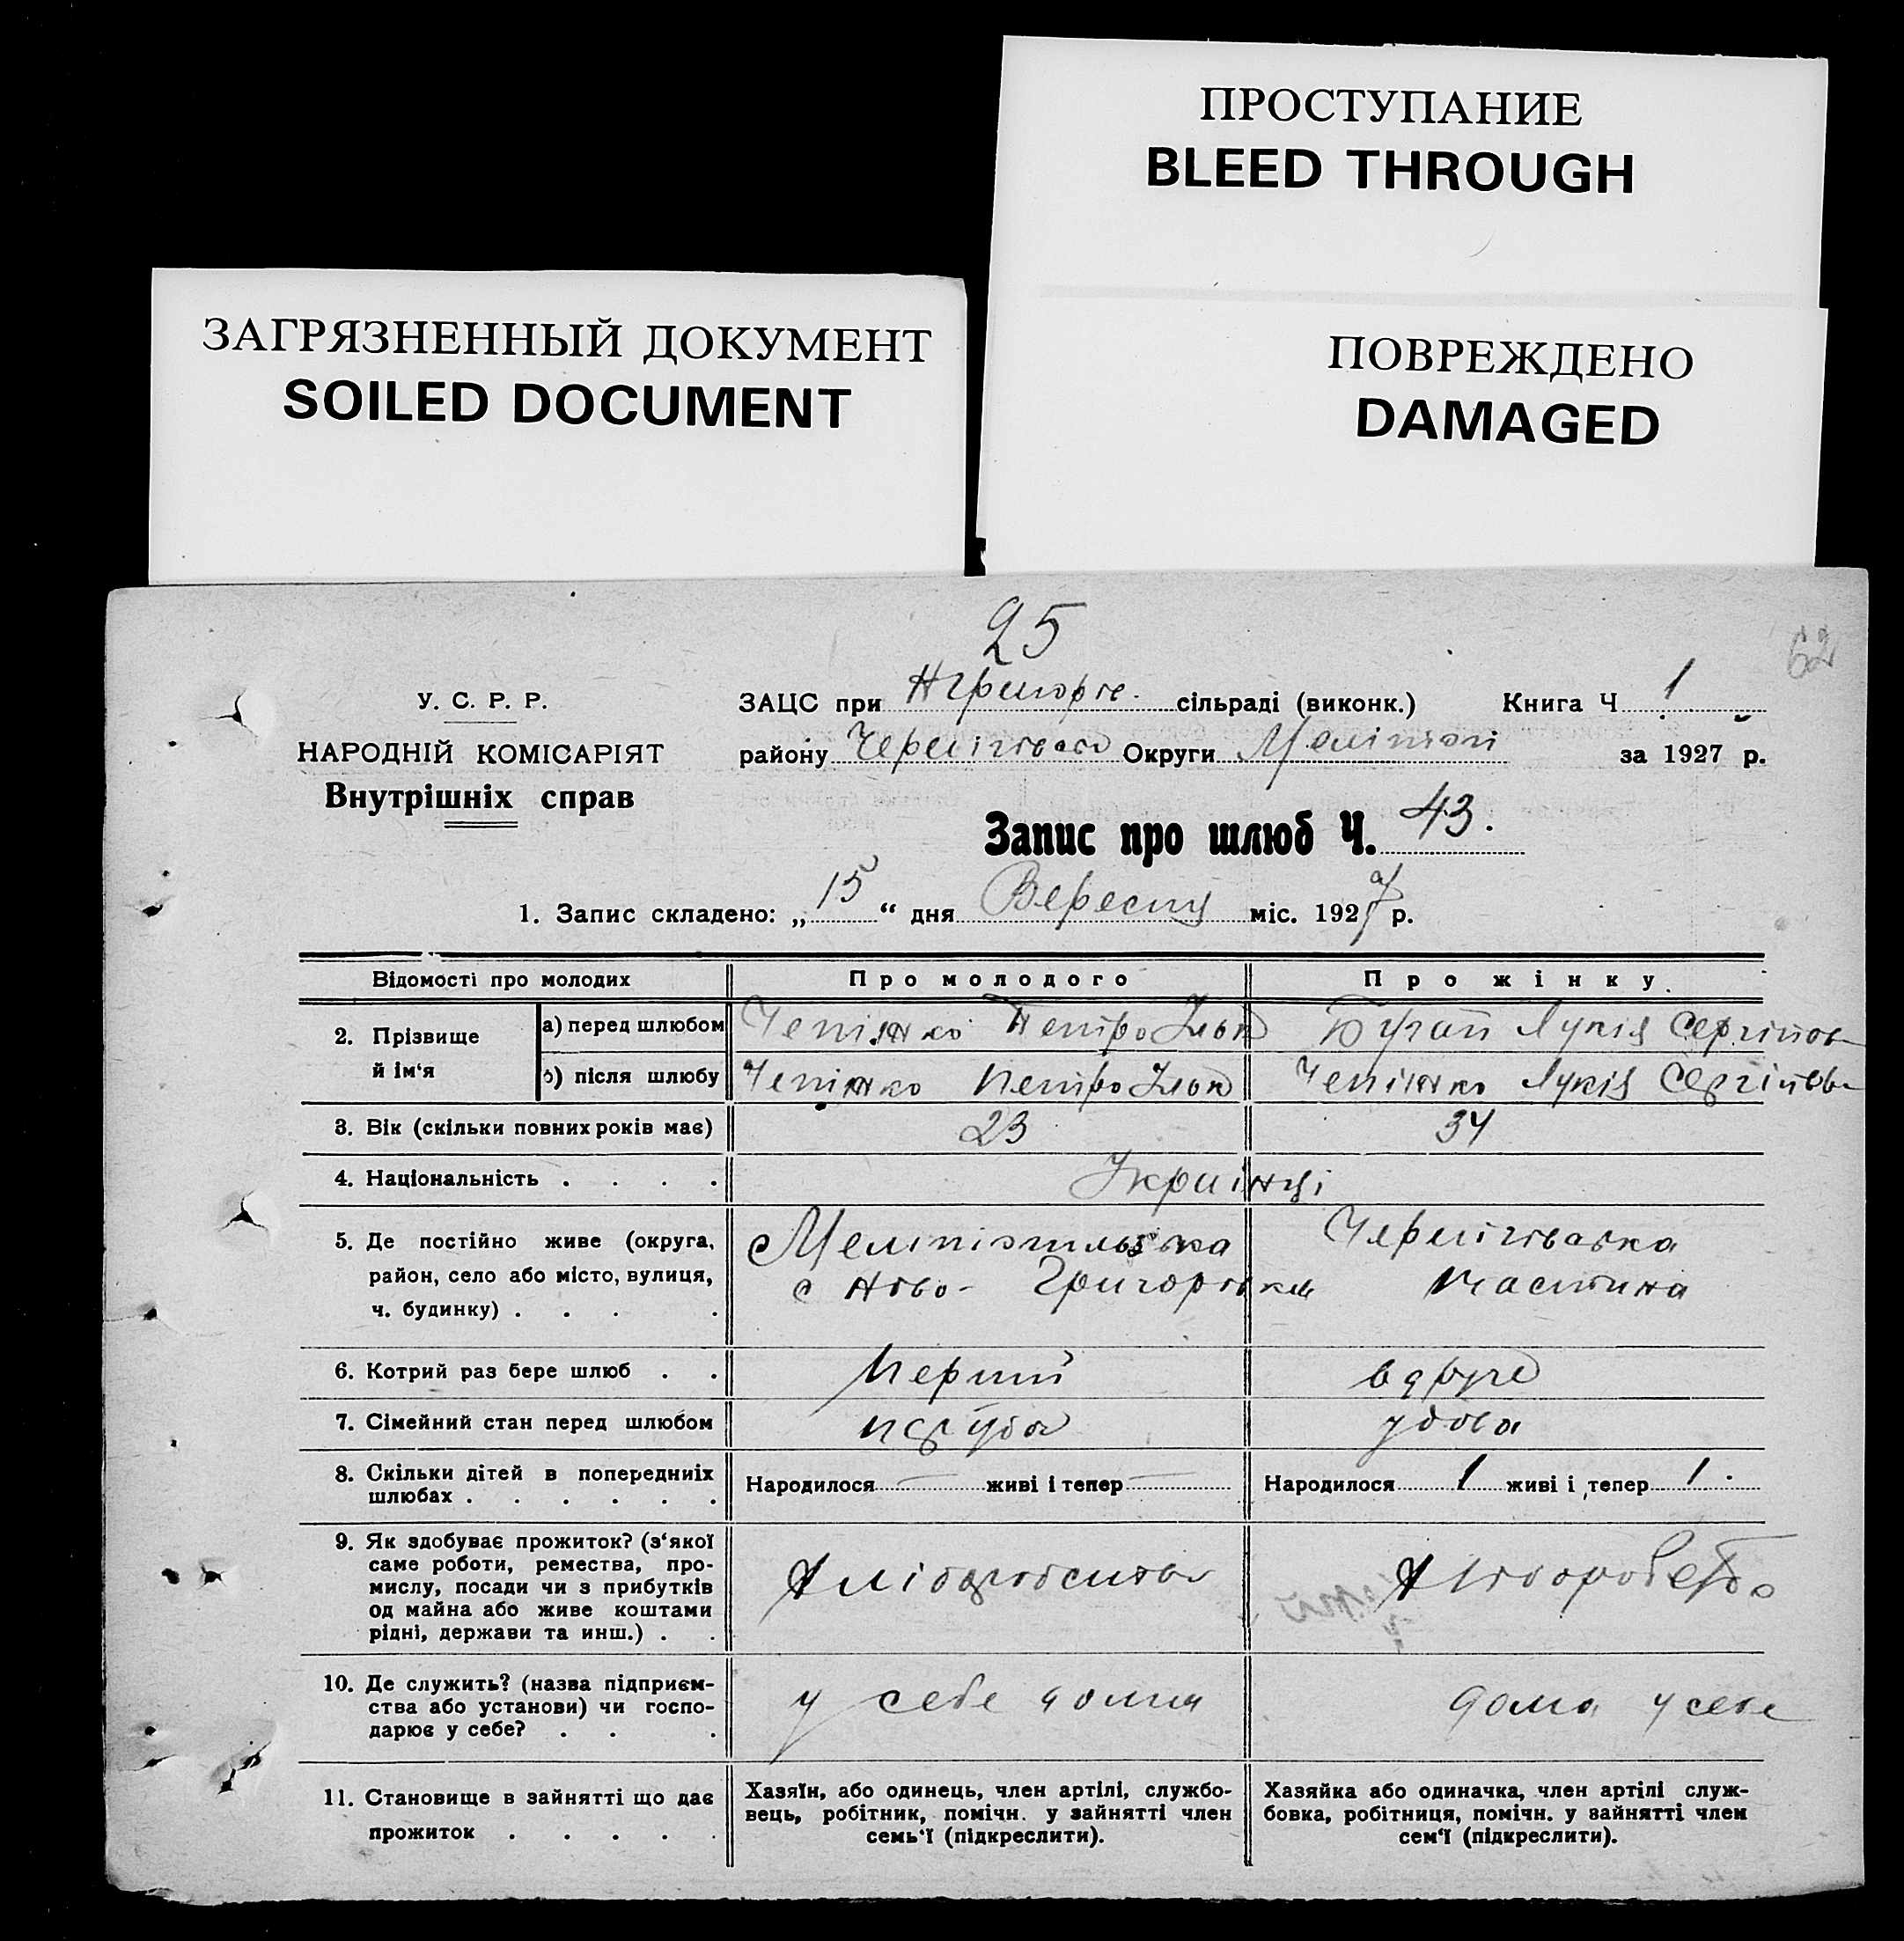 ПРОСТУПАНИЕ
BLEED THROUGH
ЗАГРЯЗНЕННЫЙ ДОКУМЕНТ
SOILED DOCUMENT
ПОВРЕЖДЕНО
DAMAGED
25
62
У. С. Р. Р.
НАРОДНІЙ КОМІСАРІЯТ
Внутрішніх справ
ЗАЦС при сільраді (виконк.) Книга Ч 1
району Округи за 1927 р.
Запис про шлюб Ч. 43.
1. Запис складено: „15“ дня Вересня міс. 1927 р.
Відомості про молодих Про молодого Про жінку.
2. Прізвище й ім‘я
а) перед шлюбом Чепіжко Петро Бугай Лукія
б) після шлюбу Чепіжко Петро Чепіжко Лукія
3. Вік (скільки повних років має) 23 34
4. Національність . . . . Українці
5. Де постійно живе (округа,
район, село або місто, вулиця,
ч. будинку) . . . .
с Ново-Григорівка
6. Котрий раз бере шлюб . . Перший вдруге
7. Сімейний стан перед шлюбом удова
8. Скільки дітей в попередниіх
шлюбах . . . . . .
Народилося — живі і тепер — Народилося 1 живі і тепер 1.
9. Як здобуває прожиток? (з‘якої
саме роботи, ремества, про-
мислу, посади чи з прибутків
од майна або живе коштами
рідні, держави та инш.) . .
10. Де служить? (назва підприєм-
ства або установи) чи госпо-
дарює у себе? . . .
у себе дома дома у себе
11. Становище в зайнятті що дає
прожиток . . . . .
Хазяїн, або одинець, член артілі, службо-
вець, робітник, помічн. у зайнятті член
семь‘ї (підкреслити).
Хазяйка або одиначка, член артілі служ-
бовка, робітниця, помічн. у зайнятті член
сем‘ї (підкреслити).